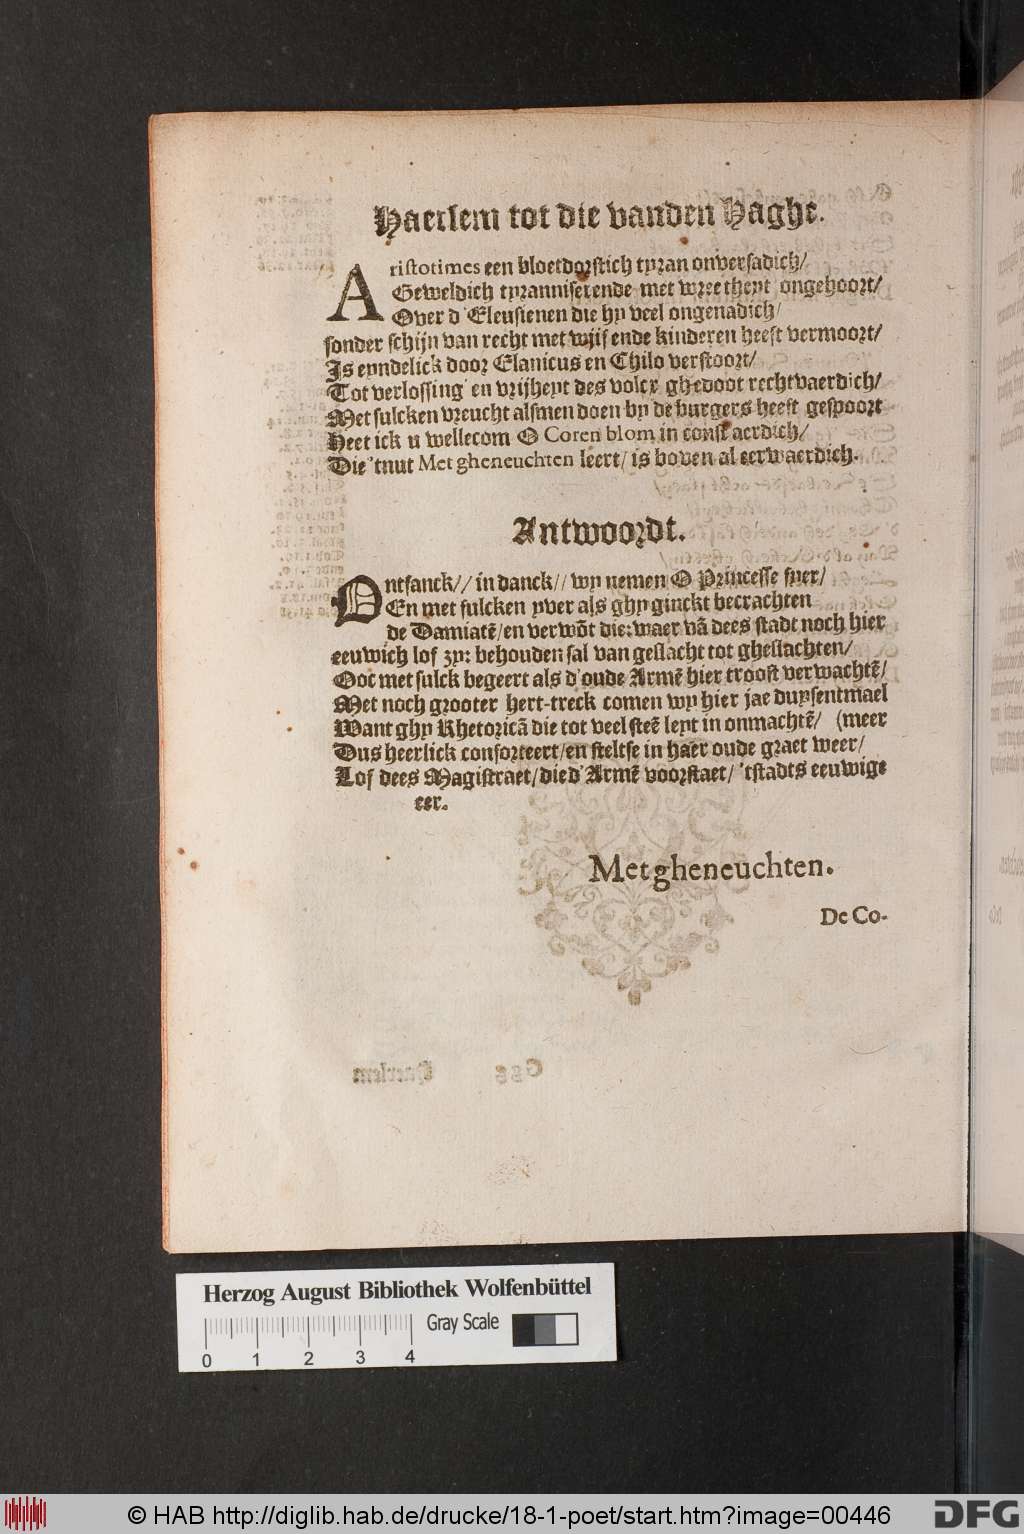 Haerlem tot die vanden Haghe.
Aristotimes een bloetdorstich tyran onversadich/
Geweldich tyranniserende met wreetheyt ongehoort/
Over d'Eleusienen die hy veel ongenadich/
sonder schijn van recht met wijf ende kinderen heeft vermoort/
Is eyndelick door Elanicus en Chilo verstoort/
Tot verlossing en vrijheyt des volcx ghedoot rechtvaerdich/
Met sulcken vreucht alsmen doen by de burgers heeft gespoort
Heet ick u wellecom O Coren blom in const aerdich/
Die 'tnut Met gheneuchten leert/ is boven al eerwaerdich.
Antwoordt.
Ontfanck// in danck// wy nemen O Princesse fyer/
En met sulcken yver als ghy ginckt becrachten
de Damiatē/ en verwōt die: waer vā dees stadt noch hier
eeuwich lof zy: behouden sal van geslacht tot gheslachten/
Ooc met sulck begeert als d'oude Armē hier troost verwachtē/
Met noch grooter hert-treck comen wy hier jae duysentmael
Want ghy Rhetoricā die tot veel steē leyt in onmachtē/ (meer
Dus heerlick conforteert/ en steltse in haer oude graet weer/
Lof dees Magistraet/ die d'Armē voorstaet/ 'tstadts eeuwige
eer.
Met gheneuchten.
De Co-
Haerlem
Ggg
Herzog August Bibliothek Wolfenbüttel
Gray Scale
0 1 2 3 4
© HAB http://diglib.hab.de/drucke/18-1-poet/start.htm?image=00446
DFG